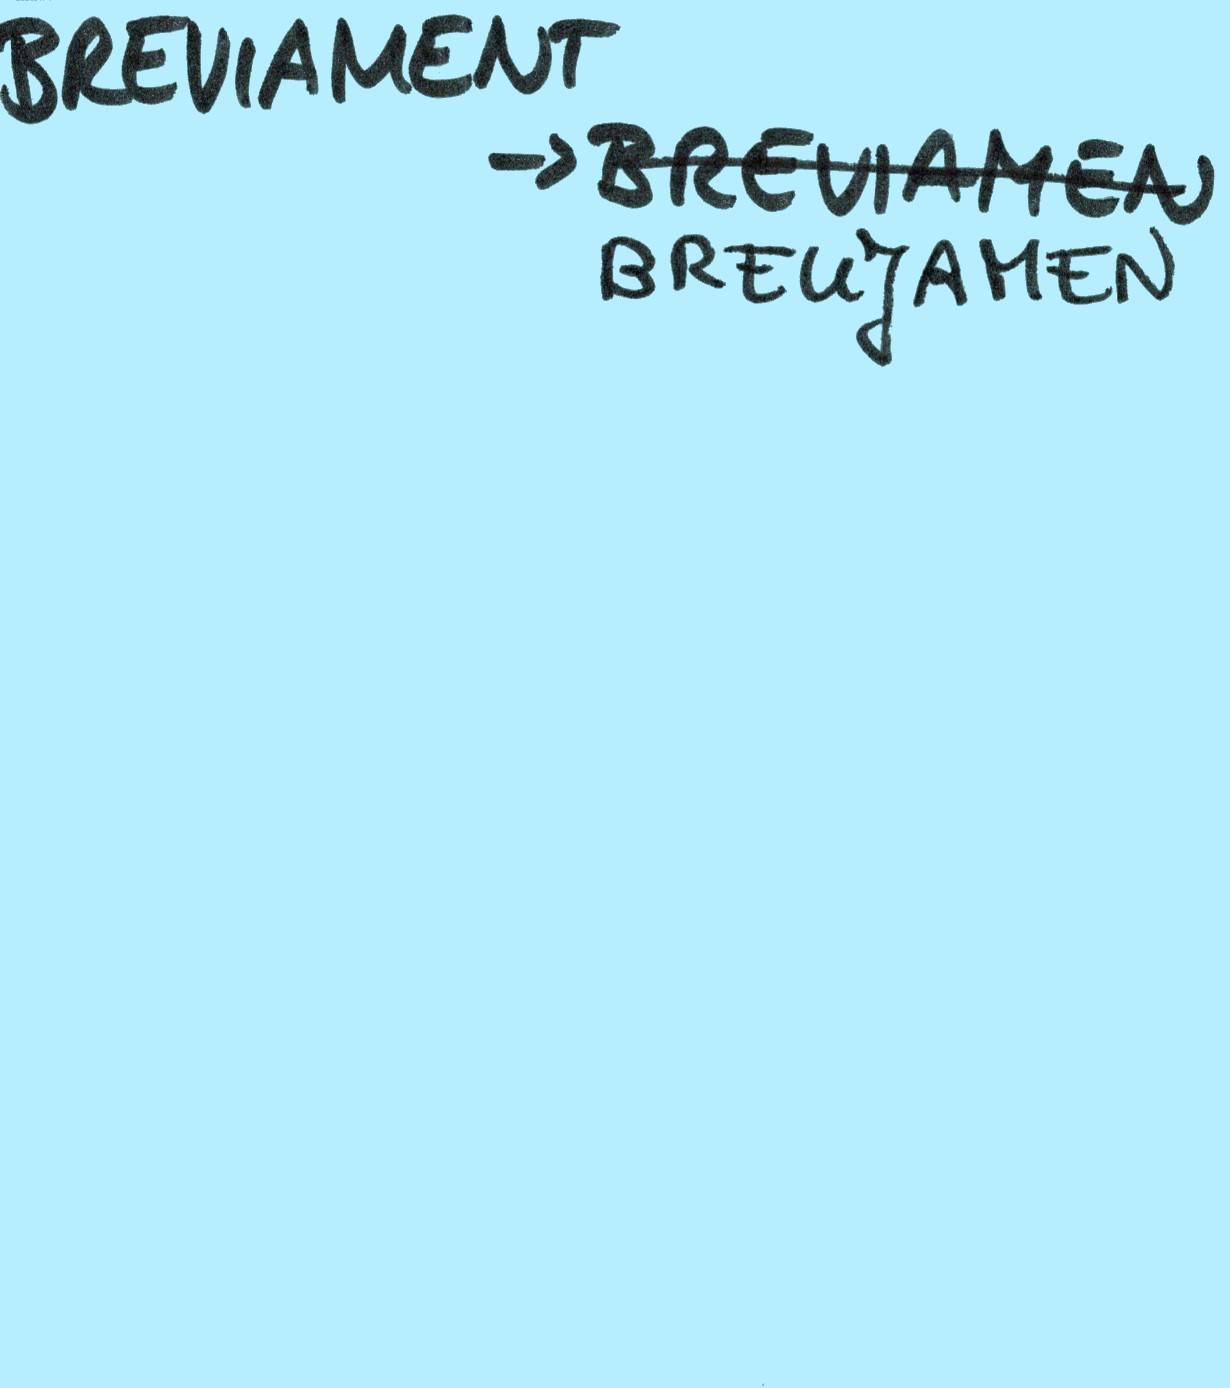 BREVIAMENT
→ BREVIAMEN
BREUJAMEN